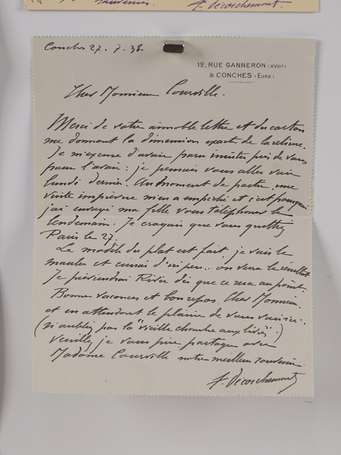 F. Decorchemont.
Conches 27. 7. 38.
12, RUE GANNERON (XVIIIᵉ)
& CONCHES (EURE)
Cher Monsieur Courville.
Merci de votre aimable lettre et du carton
me donnant la dimension exacte de la reliure.
Je m'excuse d'avoir paru près de vous
: je pensais vous aller voir
lundi dernier. Au moment de partir, une
visite imprévue m'en a empêché et c'est pourquoi
j'ai envoyé ma fille vous téléphoner le
lendemain. Je croyais que vous quittiez
Paris le 27.
Le modèle du plat est fait, je vais le
et d'ici peu.. on verra le résultat.
Je préviendrai dès que ce sera au point.
Bonnes vacances et bon repos Cher Monsieur.
et en attendant le plaisir de vous
(n'oubliez pas la "vieille ")
Veuillez je vous prie partager avec
Madame Courville notre meilleur souvenir
F. Decorchemont